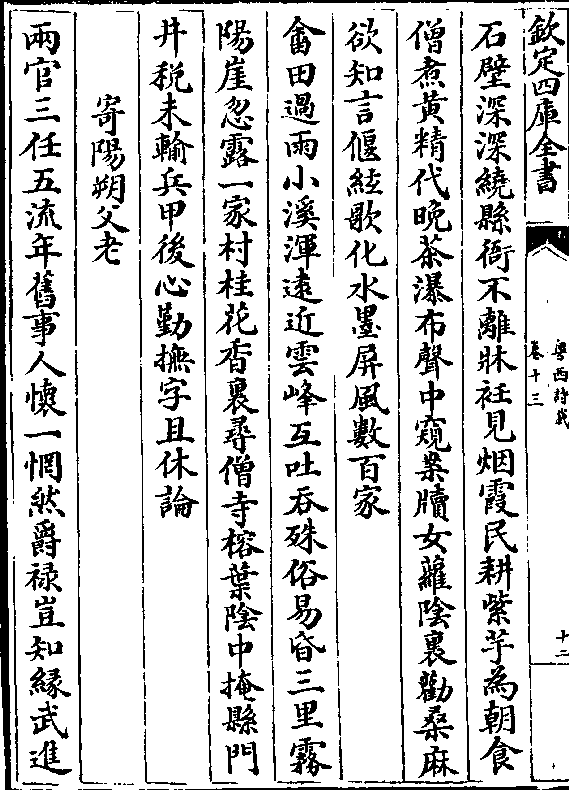 欽定四庫全書
粵西詩載
卷十三
十二
石壁深深繞縣衙不離牀衽見烟霞民耕紫芋為朝食
僧煮黃精代晚茶瀑布聲中窺案牘女蘿陰裏勸桑麻
欲知言偃絃歌化水墨屏風數百家
畬田過雨小溪渾遠近雲峰互吐吞殊俗易昏三里霧
陽崖忽露一家村桂花香裏尋僧寺榕葉陰中掩縣門
井税未輸兵甲後心勤撫字且休論
寄陽朔父老
兩官三任五流年舊事人懷一惘然爵禄豈知緣武進